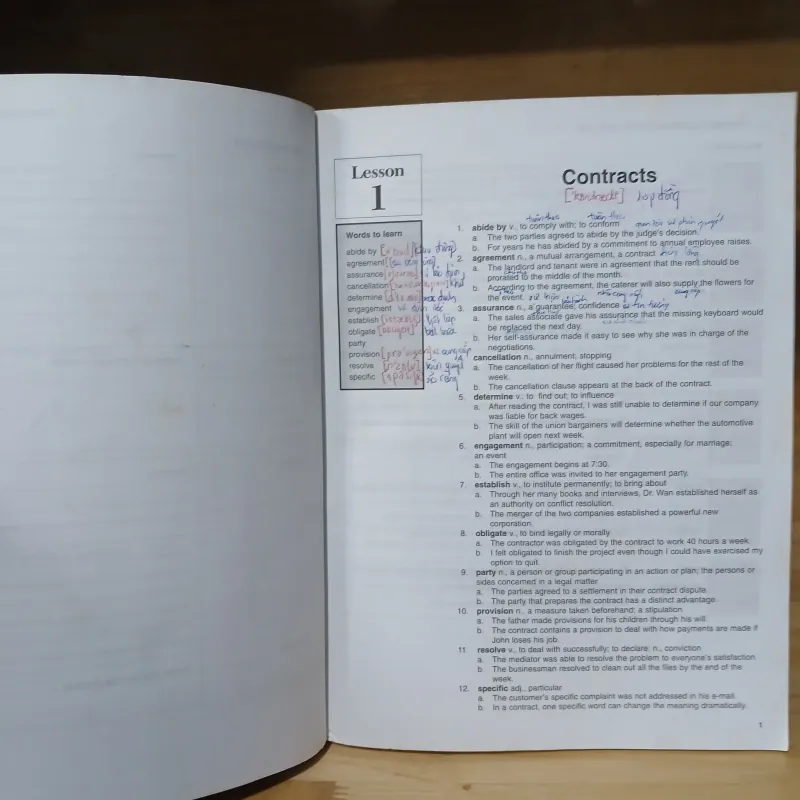 Lesson
1
Contracts
hợp đồng
Words to learn
abide by
agreement
assurance
cancellation
determine
engagement
establish
obligate
party
provision
resolve
specific
tuân theo
1. abide by v., to comply with; to conform
a. The two parties agreed to abide by the judge's decision.
b. For years he has abided by a commitment to annual employee raises.
2. agreement n., a mutual arrangement, a contract
a. The landlord and tenant were in agreement that the rent should be
prorated to the middle of the month.
b. According to the agreement, the caterer will also supply the flowers for
the event.
3. assurance n., a guarantee; confidence
a. The sales associate gave his assurance that the missing keyboard would
be replaced the next day.
b. Her self-assurance made it easy to see why she was in charge of the
negotiations.
cancellation n., annulment; stopping
a. The cancellation of her flight caused her problems for the rest of the
week.
b. The cancellation clause appears at the back of the contract.
5. determine v., to find out; to influence
a. After reading the contract, I was still unable to determine if our company
was liable for back wages.
b. The skill of the union bargainers will determine whether the automotive
plant will open next week.
6. engagement n., participation; a commitment, especially for marriage;
an event
a. The engagement begins at 7:30.
b. The entire office was invited to her engagement party.
7. establish v., to institute permanently; to bring about
a. Through her many books and interviews, Dr. Wan established herself as
an authority on conflict resolution.
b. The merger of the two companies established a powerful new
corporation.
8. obligate v., to bind legally or morally
a. The contractor was obligated by the contract to work 40 hours a week.
b. I felt obligated to finish the project even though I could have exercised my
option to quit.
9. party n., a person or group participating in an action or plan; the persons or
sides concerned in a legal matter
a. The parties agreed to a settlement in their contract dispute.
b. The party that prepares the contract has a distinct advantage.
10. provision n., a measure taken beforehand; a stipulation
a. The father made provisions for his children through his will.
b. The contract contains a provision to deal with how payments are made if
John loses his job.
11. resolve v., to deal with successfully; to declare; n., conviction
a. The mediator was able to resolve the problem to everyone's satisfaction.
b. The businessman resolved to clean out all the files by the end of the
week.
12. specific adj., particular
a. The customer's specific complaint was not addressed in his e-mail.
b. In a contract, one specific word can change the meaning dramatically.
1